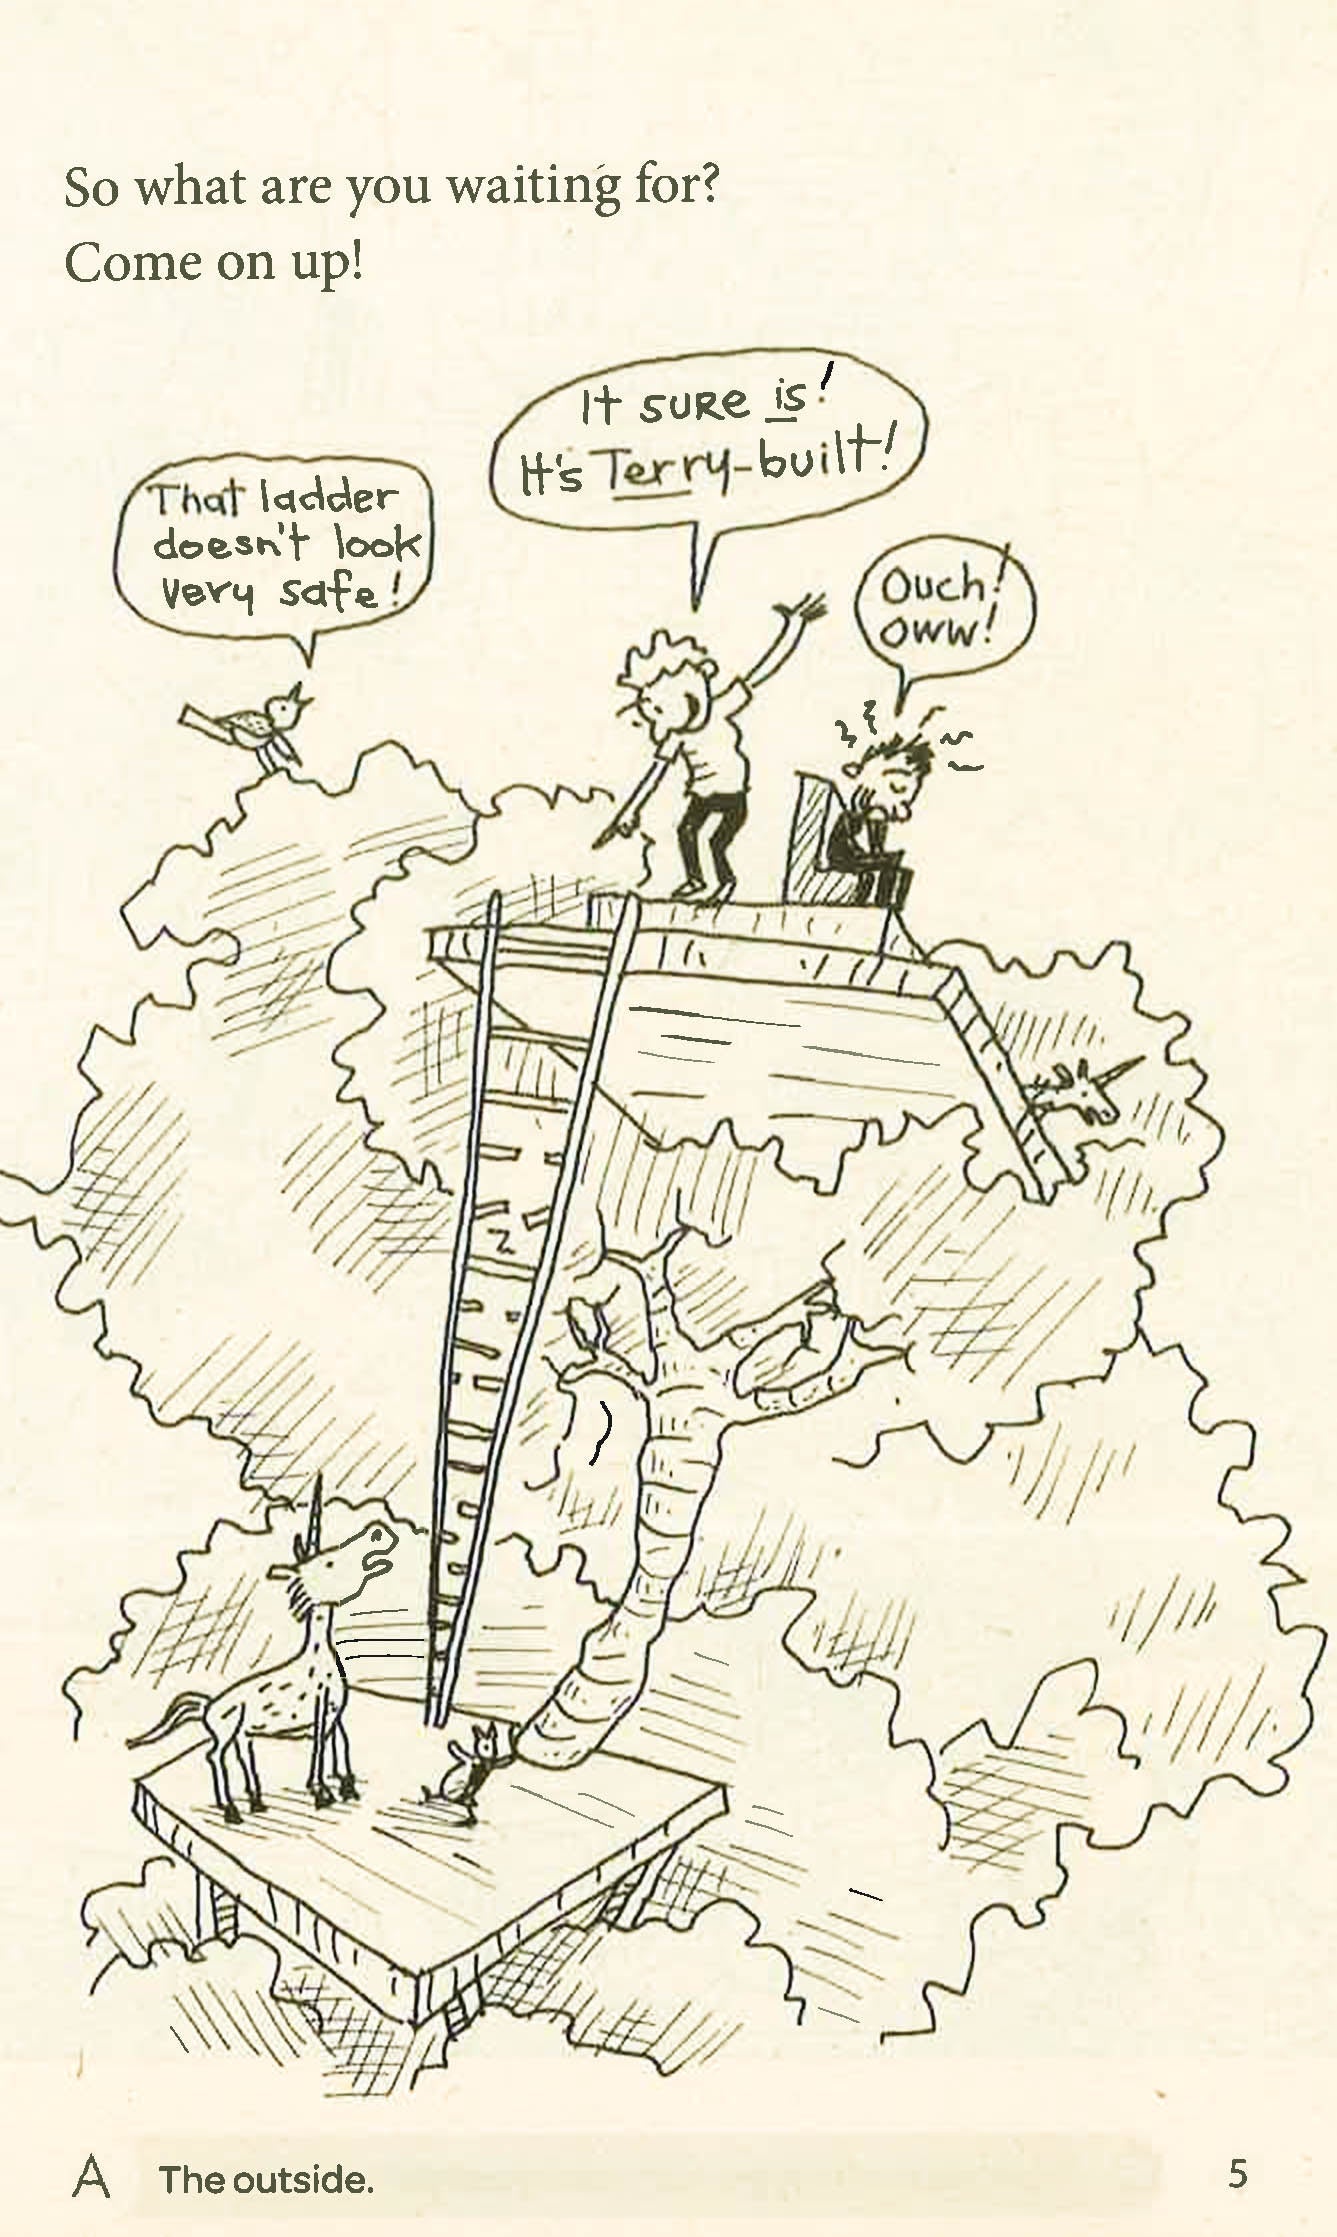 So what are you waiting for?
Come on up!
It sure is!
It's Terry-built!
That ladder
doesn't look
very safe!
Ouch!
Oww!
A The outside.
5